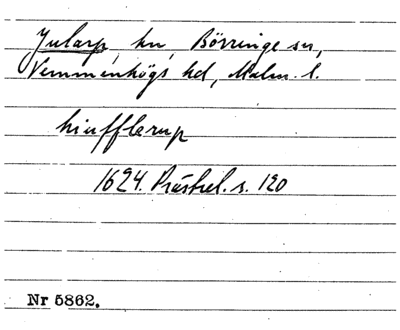 Jularp, hn, Börringe sn,
Vemmenhögs hd, Malm. l.
hiufflerup
1624. Prästrel. s. 120
Nr 5862.